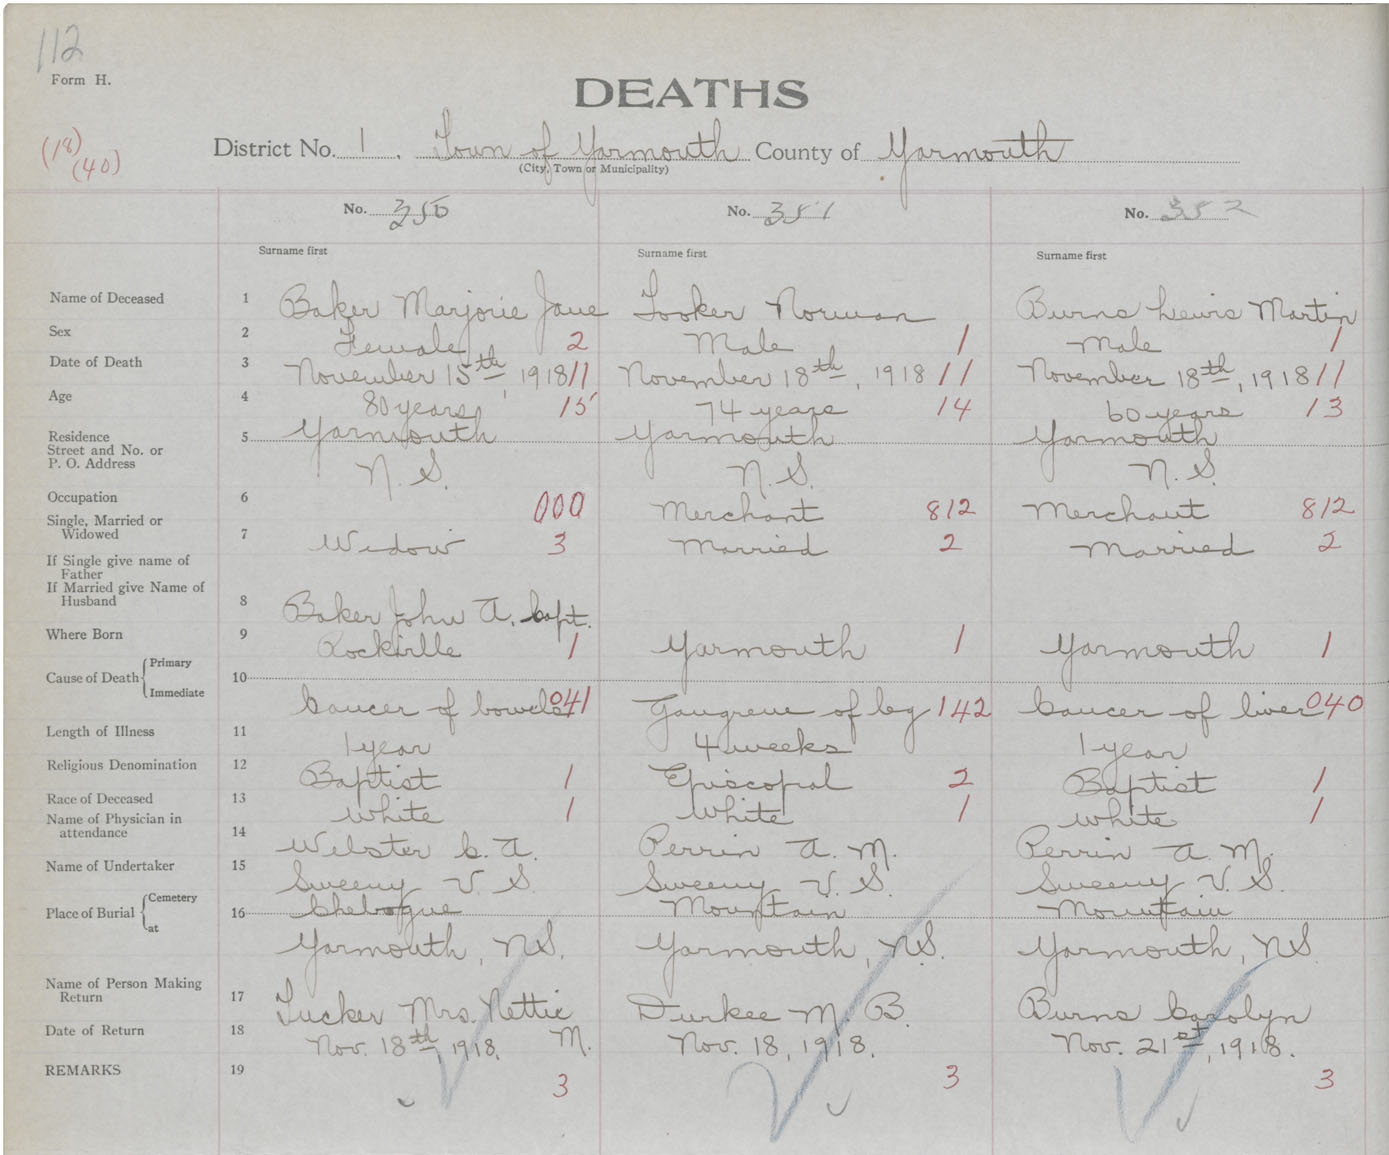 112
Form H.
DEATHS
(18)
(40)
District No. 1. Town of Yarmouth County of Yarmouth
(City, Town or Municipality)
No. 350 No. 351 No. 352
Surname first Surname first Surname first
Name of Deceased 1 Baker Marjorie Jane Tooker Norman Burns Lewis Martin
Sex 2 Female 2 Male 1 Male 1
Date of Death 3 November 15th, 1918 11 November 18th, 1918 11 November 18th, 1918 11
Age 4 80 years 15 74 years 14 60 years 13
Residence
Street and No. or
P. O. Address
5 Yarmouth Yarmouth Yarmouth
N. S. N. S. N. S.
Occupation 6 000 Merchant 812 Merchant 812
Single, Married or
Widowed
7 Widow 3 Married 2 Married 2
If Single give name of
Father
If Married give Name of
Husband
8 Baker John A. Capt.
Where Born 9 Rockville 1 Yarmouth 1 Yarmouth 1
Cause of Death { Primary
Immediate
10 Cancer of bowels 041 Gangrene of leg 142 Cancer of liver 040
Length of Illness 11 1 year 4 weeks 1 year
Religious Denomination 12 Baptist 1 Episcopal 2 Baptist 1
Race of Deceased 13 White 1 White 1 White 1
Name of Physician in
attendance
14 Webster C. A. Perrin A. M. Perrin A. M.
Name of Undertaker 15 Sweeny V. S. Sweeny V. S. Sweeny V. S.
Place of Burial { Cemetery
at
16 Chebogue Mountain Mountain
Yarmouth, N.S. Yarmouth, N.S. Yarmouth, N.S.
Name of Person Making
Return
17 Tucker Mrs. Nettie M. Durkee M. B. Burns Carolyn
Date of Return 18 Nov. 18th, 1918. Nov. 18, 1918. Nov. 21st, 1918.
REMARKS 19 3 3 3